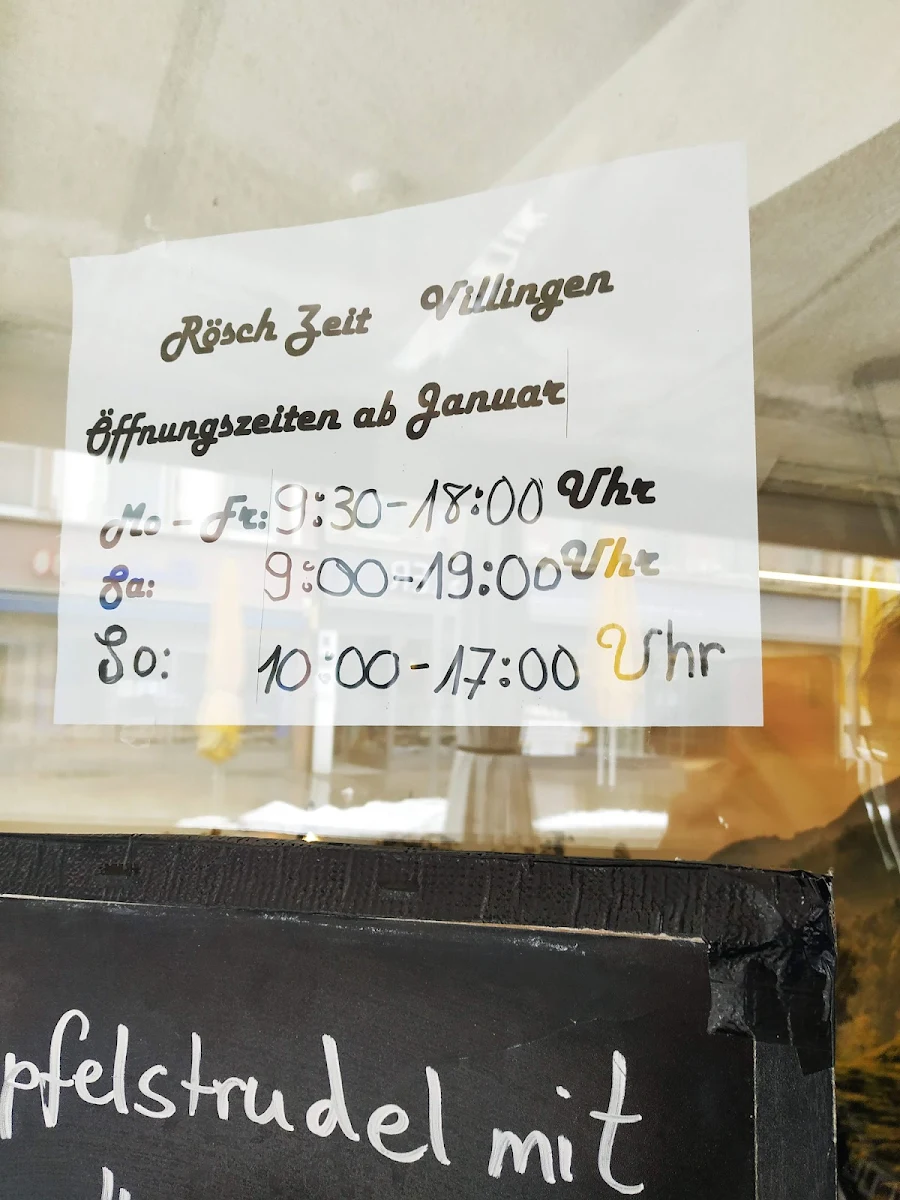 Rösch Zeit Villingen
Öffnungszeiten ab Januar
Mo - Fr: 9:30-18:00 Uhr
Sa: 9:00-19:00 Uhr
So: 10:00-17:00 Uhr
pfelstrudel mit